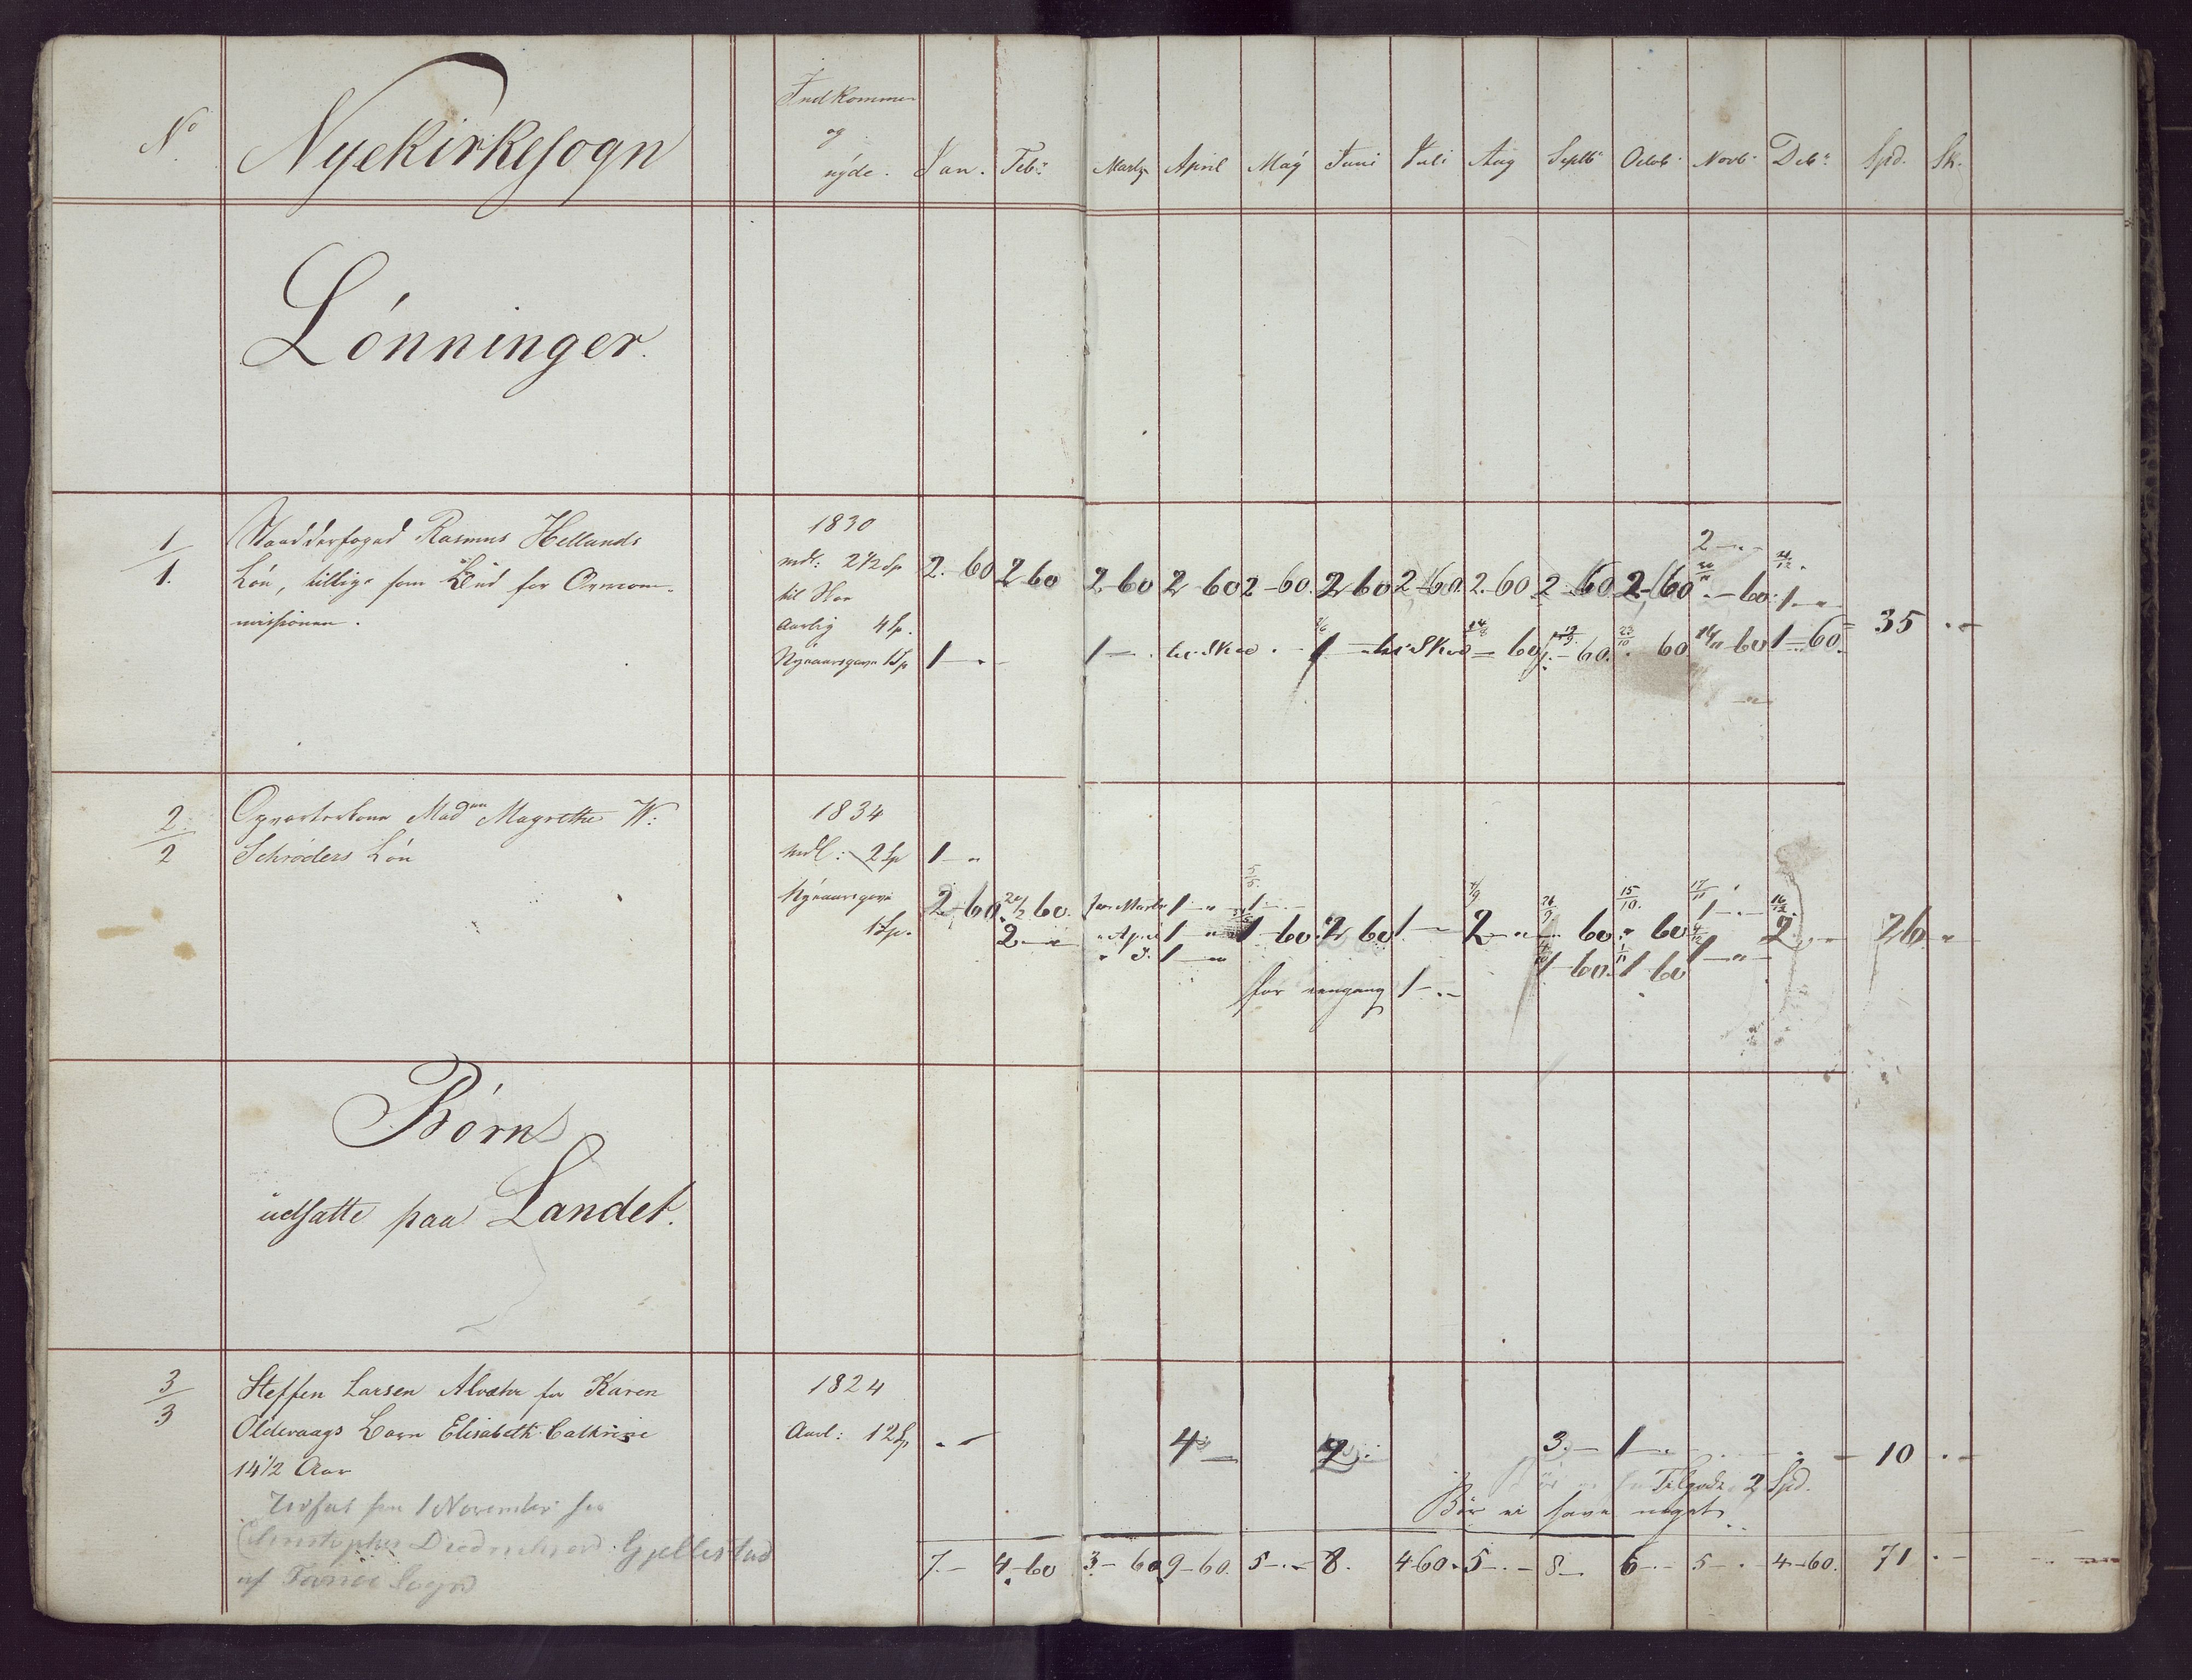 No Nyekirkesogn Indkommen og nyde. Jan. Feb. Marts April May Juni Juli Aug Septb. Octob. Novb. Deb. Spd. Sk.
Lønninger.
1/1. Rasmus Hellands 1830
Løn, tillige som Bud for mdl: 2 1/2 Sp 2. 60 2 60 2-60 2 60 2-60. 2 60 2-60. 2.60 2-60. 2-60 2-"-
til Skoe
missionen. Aarlig 4 Sp. 35
Nyaarsgave 1 Sp 1-" 1- til Skoe 1 til Skoe 60 60 60 1-60.
2/2 Mad Magrethe W: 1834
Schrøders Løn mdl: 2 Sp 1-"
Nyaarsgave 2-60. 60. for Marts 1-" 1-
1 Sp. 2-" April 1-" 1-60. 2 60 1- 2-" 60 60 2 26
1-" 1-60. 1-60 1-"
for eengang 1-"-
Børn
udsatte paa Landet.
3/3 Steffen Larsen Alvæhr for Karen 1824
Oldervaags Barn Elisabeth Cathrine Aarl: 12 Sp 4- 2 3.- 1- 10
14 1/2 Aar
Tilgode 2 Spd.
Bør ei have noget
fra 1 November hos
Christopher Diedrichsen Gjellestad
af Fanøe Sogn
7.- 4-60 3-60 9-60. 5-.- 8. 4-60. 5-.- 8- 6-.- 5-.- 4-60. 71